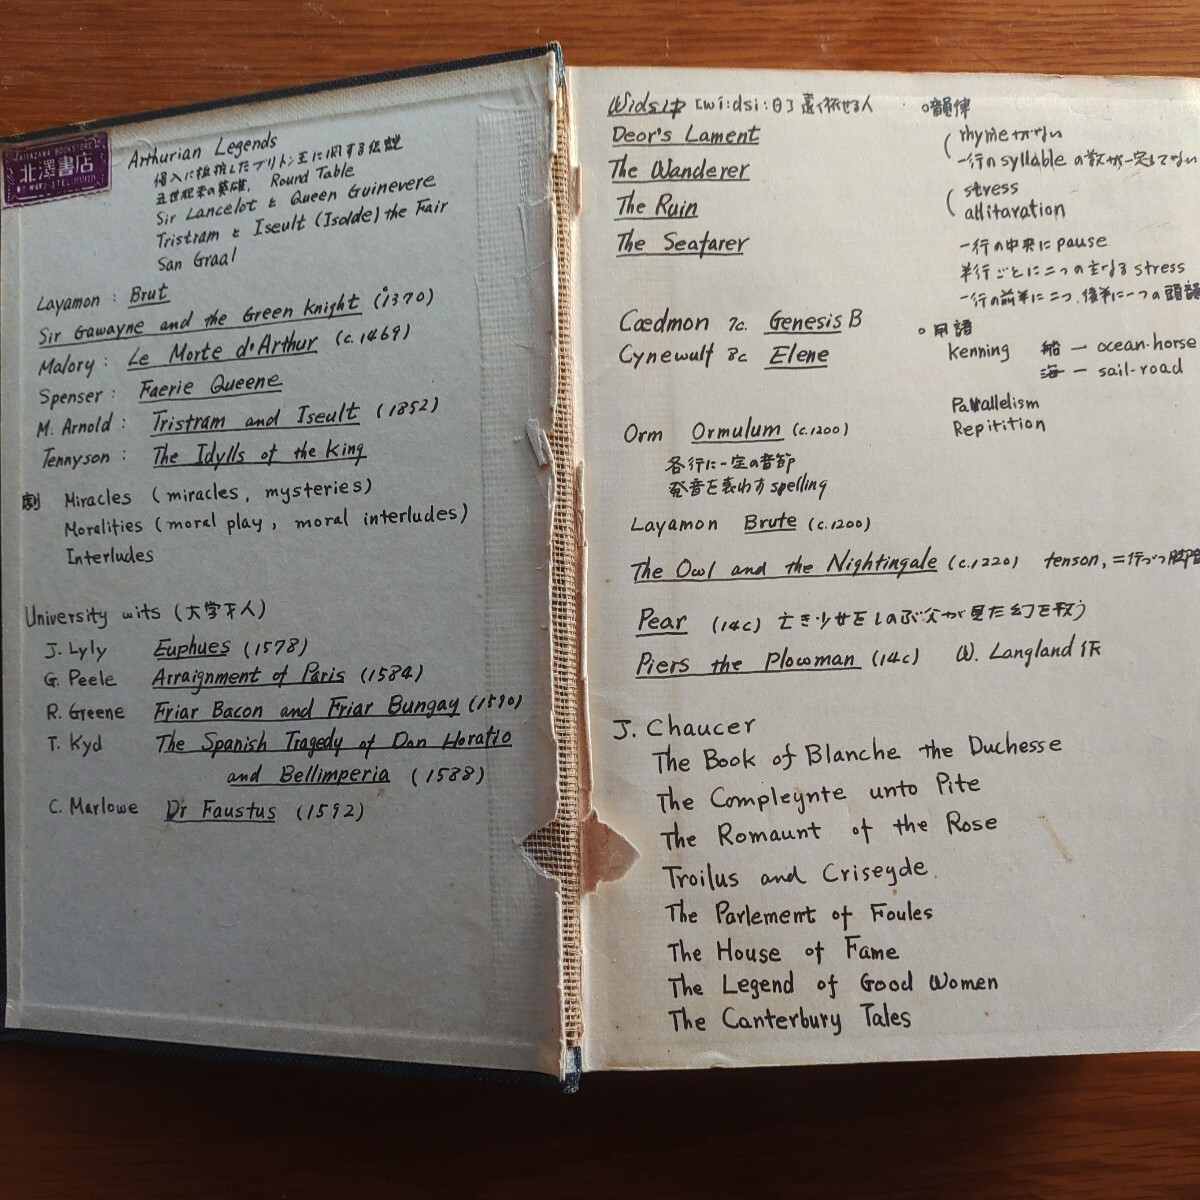 KITAZAWA BOOKSTORE
北澤書店
Arthurian Legends
侵入に抵抗したブリトン王に関する伝説
五世紀末の英雄. Round Table
Sir Lancelot と Queen Guinevere
Tristram と Iseult (Isolde) the Fair
San Graal
Layamon : Brut
Sir Gawayne and the Green Knight (1370)
Malory : Le Morte d'Arthur (c.1469)
Spenser : Faerie Queene
M. Arnold : Tristram and Iseult (1852)
Tennyson : The Idylls of the King
劇 Miracles (miracles, mysteries)
Moralities (moral play, moral interludes)
Interludes
University wits (大学才人)
J. Lyly Euphues (1578)
G. Peele Arraignment of Paris (1584)
R. Greene Friar Bacon and Friar Bungay (1590)
T. Kyd The Spanish Tragedy of Don Horatio
and Bellimperia (1588)
C. Marlowe Dr Faustus (1592)
Widsiþ [wí:dsi:θ] 遠く旅せる人
Deor's Lament
The Wanderer
The Ruin
The Seafarer
Cædmon 7c. Genesis B
Cynewulf 8c Elene
Orm Ormulum (c.1200)
各行に一定の音節
発音を表わす spelling
Layamon Brute (c.1200)
The Owl and the Nightingale (c.1220) tenson, 二行づつ脚
Pear (14c) 亡き少女をしのぶ父が見た幻を歌う
Piers the Plowman (14c) W. Langland 作
J. Chaucer
The Book of Blanche the Duchesse
The Compleynte unto Pite
The Romaunt of the Rose
Troilus and Criseyde.
The Parlement of Foules
The House of Fame
The Legend of Good Women
The Canterbury Tales
○韻律
rhymeがない
一行のsyllableの数が一定してない
stress
allitaration
一行の中央にpause
半行ごとに二つの主なるstress
一行の前半に二つ、後半に一つの頭韻
○用語
kenning 船 — ocean-horse
海 — sail-road
Parallelism
Repitition